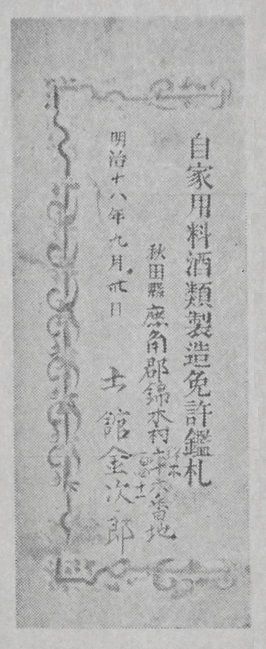 自家用料酒類製造免許鑑札
秋田縣鹿角郡錦木村六十六番地
土館金次郎
明治十八年九月廿日